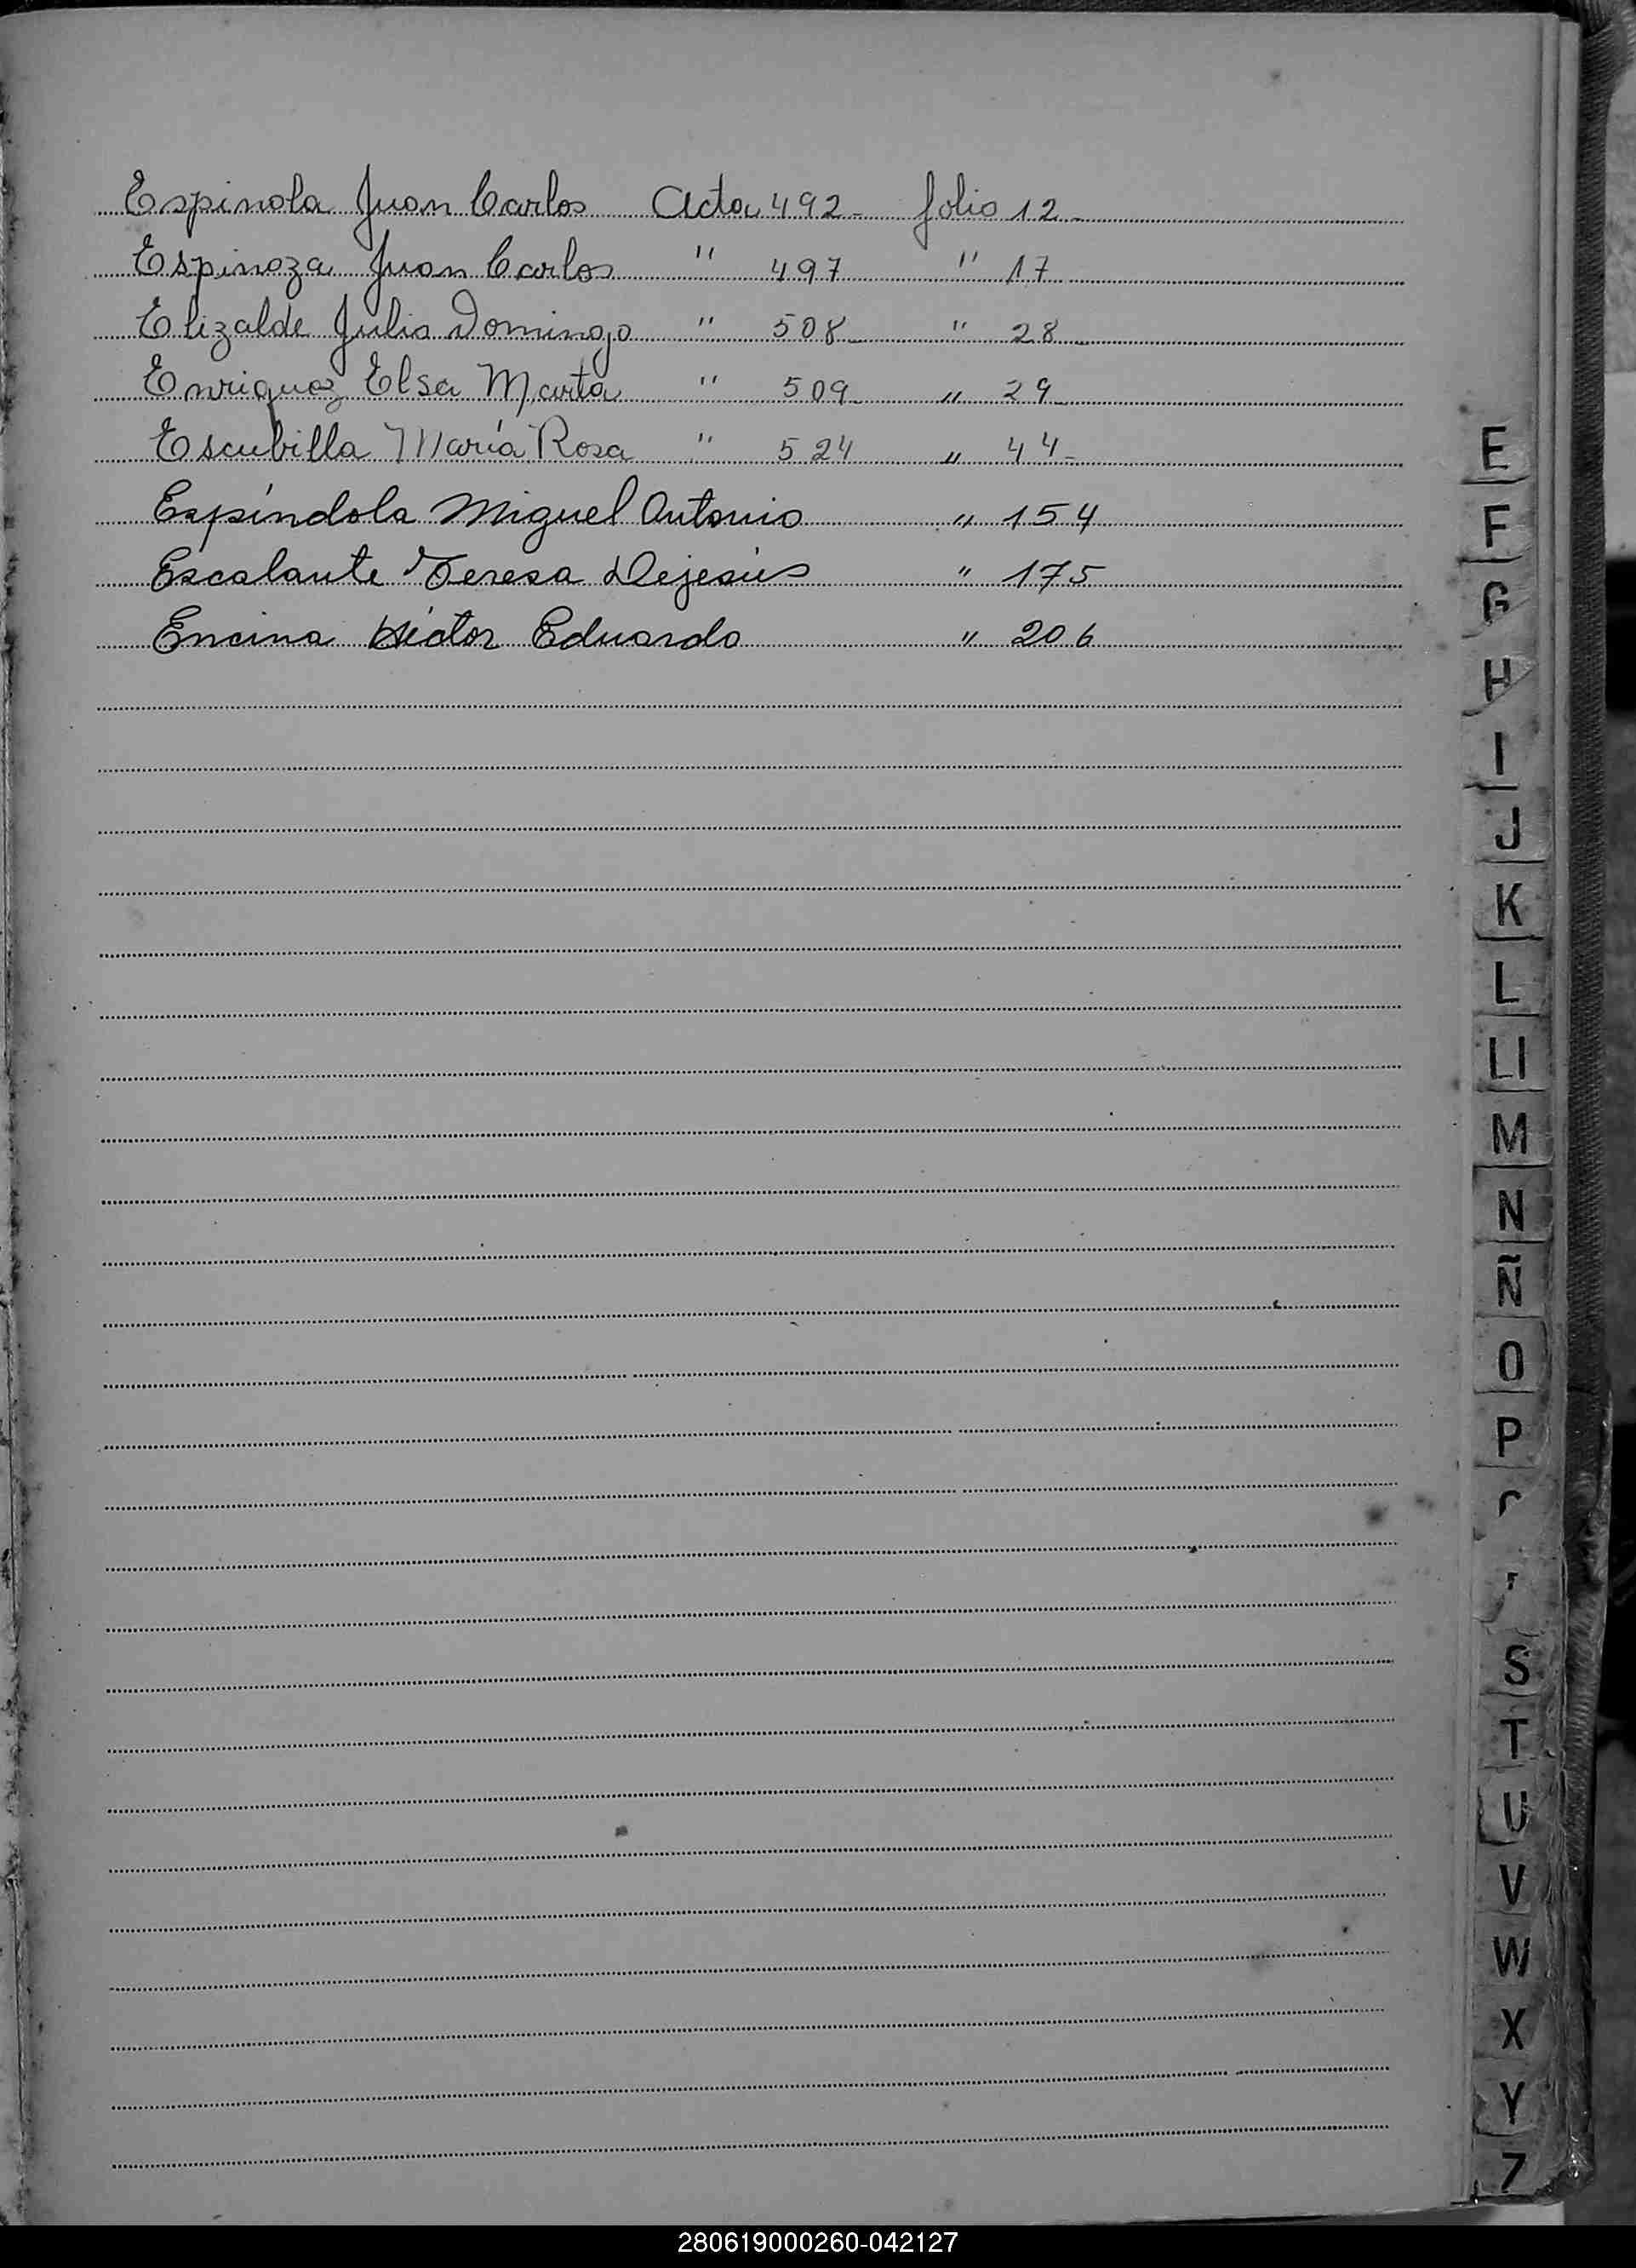 Espinola Juan Carlos Acta 492- folio 12-
Espinoza Juan Carlos " 497 " 17
Elizalde Julio Domingo " 508- " 28-
Enriquez Elsa Marta " 509- " 29-
Escubilla María Rosa " 524 " 44-
Espíndola Miguel Antonio " 154
Escalante Teresa Dejesús " 175
Encina Héctor Eduardo " 206
E
F
G
H
I
J
K
L
Ll
M
N
Ñ
O
P
S
T
U
V
W
X
Y
Z
280619000260-042127